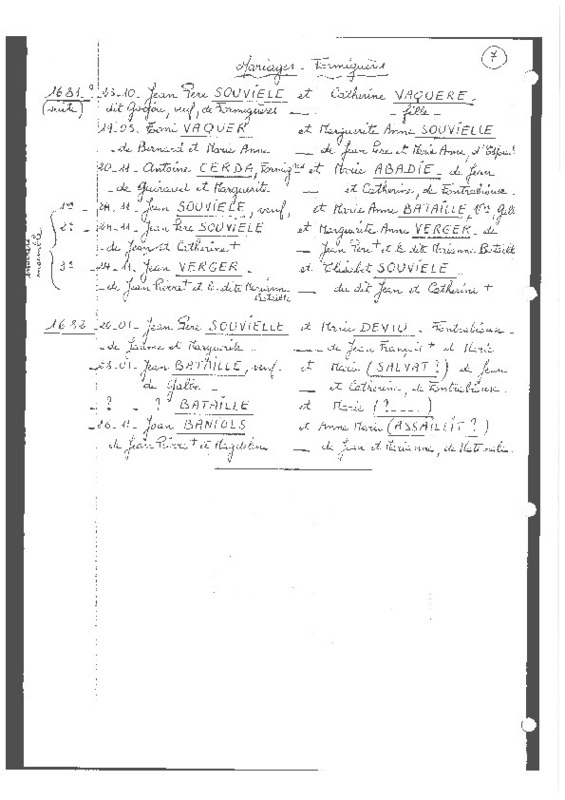 7
Mariages - Formiguères
1681 ? - 23-10 - Jean Père SOUVIELE et Catherine VAQUERE -
(suite) dit veuf, de Formiguères - fille -
19.05 - VAQUER et Marguerite Anne SOUVIELLE
- de Bernard et Marie Anne - de Jean Père et Marie Anne,
20-11 - Antoine CERDA, et Marie ABADIE - de Jean
- de Guiraud et Marguerite - et Catherine, de Fontrabiouse -
1º - 24.11 - Jean SOUVIELE, veuf, et Marie Anne BATAILLE,
2º - 24-11 - Jean Père SOUVIELE et Marguerite Anne VERGER - de
- de Jean et Catherine + - Jean Père + et la dite Marianne Bataille
ensemble
3º - 24-11 - Jean VERGER - et SOUVIELE -
- de Jean Pierre + et la dite Marianne Bataille - du dit Jean et Catherine +
1682 - 26-01 - Jean Père SOUVIELLE et Marie DEVIU - Fontrabiouse -
- de Jaume et Marguerite - - de Jean François + et Marie
- 23.01 - Jean BATAILLE, veuf - et Marie (SALVAT?) de Jean
de Galbe - - et Catherine, de Fontrabiouse -
- ? - ? BATAILLE et Marie (?....)
- 26.11 - Joan BANIOLS et Anne Marie (ASSAILLIT?)
- de Jean Pierre + et Magdeleine - de Jean et Marianne, de Matemale -